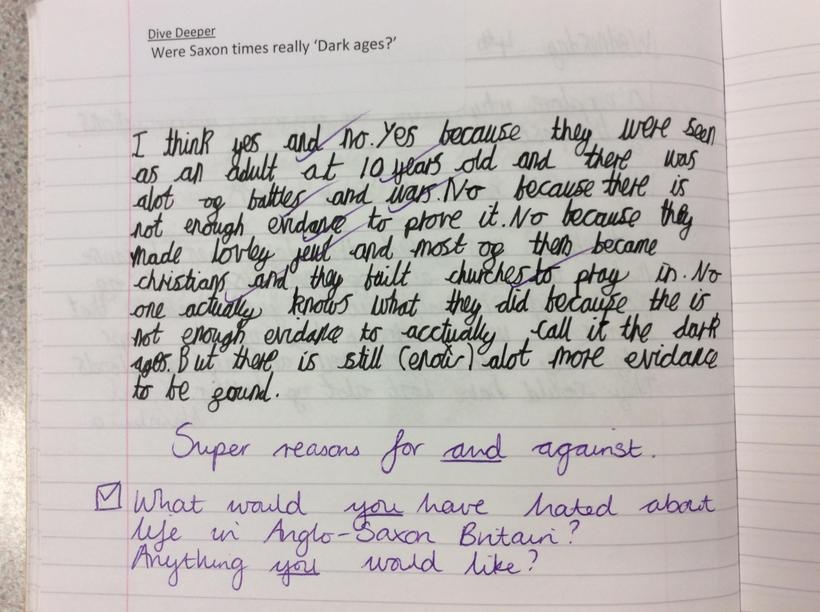 Dive Deeper
Were Saxon times really ‘Dark ages?’
I think yes and no. Yes because they were seen
as an adult at 10 years old and there was
alot og battles and wars. No because there is
not enough evidance to prove it. No because they
made lovley jeul and most og them became
christians and they built churches to pray in. No
one actually knows what they did because the is
not enough evidance to acctually call it the dark
ages. But there is still alot more evidance
to be gound.
Super reasons for and against.
What would you have hated about
life in Anglo-Saxon Britain?
Anything you would like?